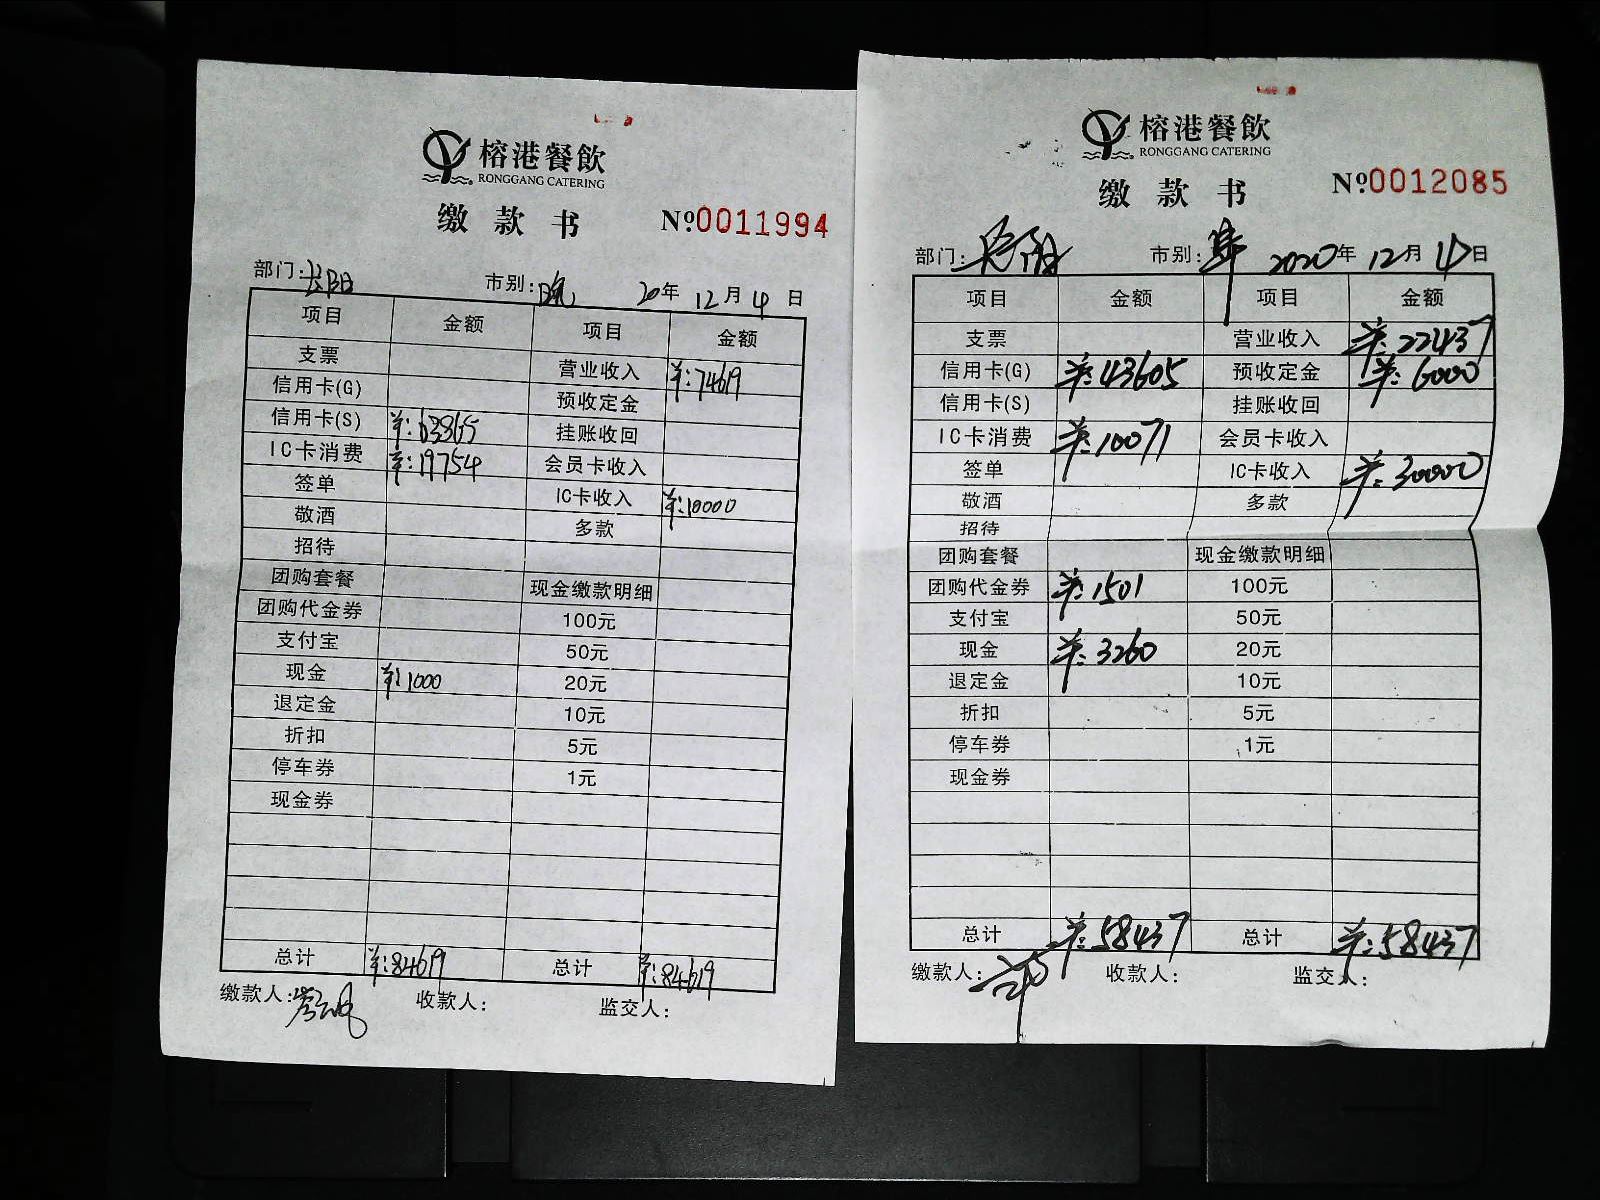 榕港餐飲
RONGGANG CATERING
缴款书 №0011994
部门:长阳 市别:晚 20年 12月 4日
项目 金额 项目 金额
支票 营业收入 ¥:74619
信用卡(G) 预收定金
信用卡(S) ¥:63865 挂账收回
IC卡消费 ¥:19754 会员卡收入
签单 IC卡收入 ¥:10000
敬酒 多款
招待
团购套餐 现金缴款明细
团购代金券 100元
支付宝 50元
现金 ¥:1000 20元
退定金 10元
折扣 5元
停车券 1元
现金券
总计 ¥:84619 总计 ¥:84619
缴款人: 收款人: 监交人:
榕港餐飲
RONGGANG CATERING
缴款书 №0012085
部门:长阳 市别: 2020年 12月 4日
项目 金额 项目 金额
支票 营业收入 ¥:22437
信用卡(G) ¥:43605 预收定金 ¥:6000
信用卡(S) 挂账收回
IC卡消费 ¥:10071 会员卡收入
签单 IC卡收入 ¥:30000
敬酒 多款
招待
团购套餐 现金缴款明细
团购代金券 ¥:1501 100元
支付宝 50元
现金 ¥:3260 20元
退定金 10元
折扣 5元
停车券 1元
现金券
总计 ¥:58437 总计 ¥:58437
缴款人: 收款人: 监交人: